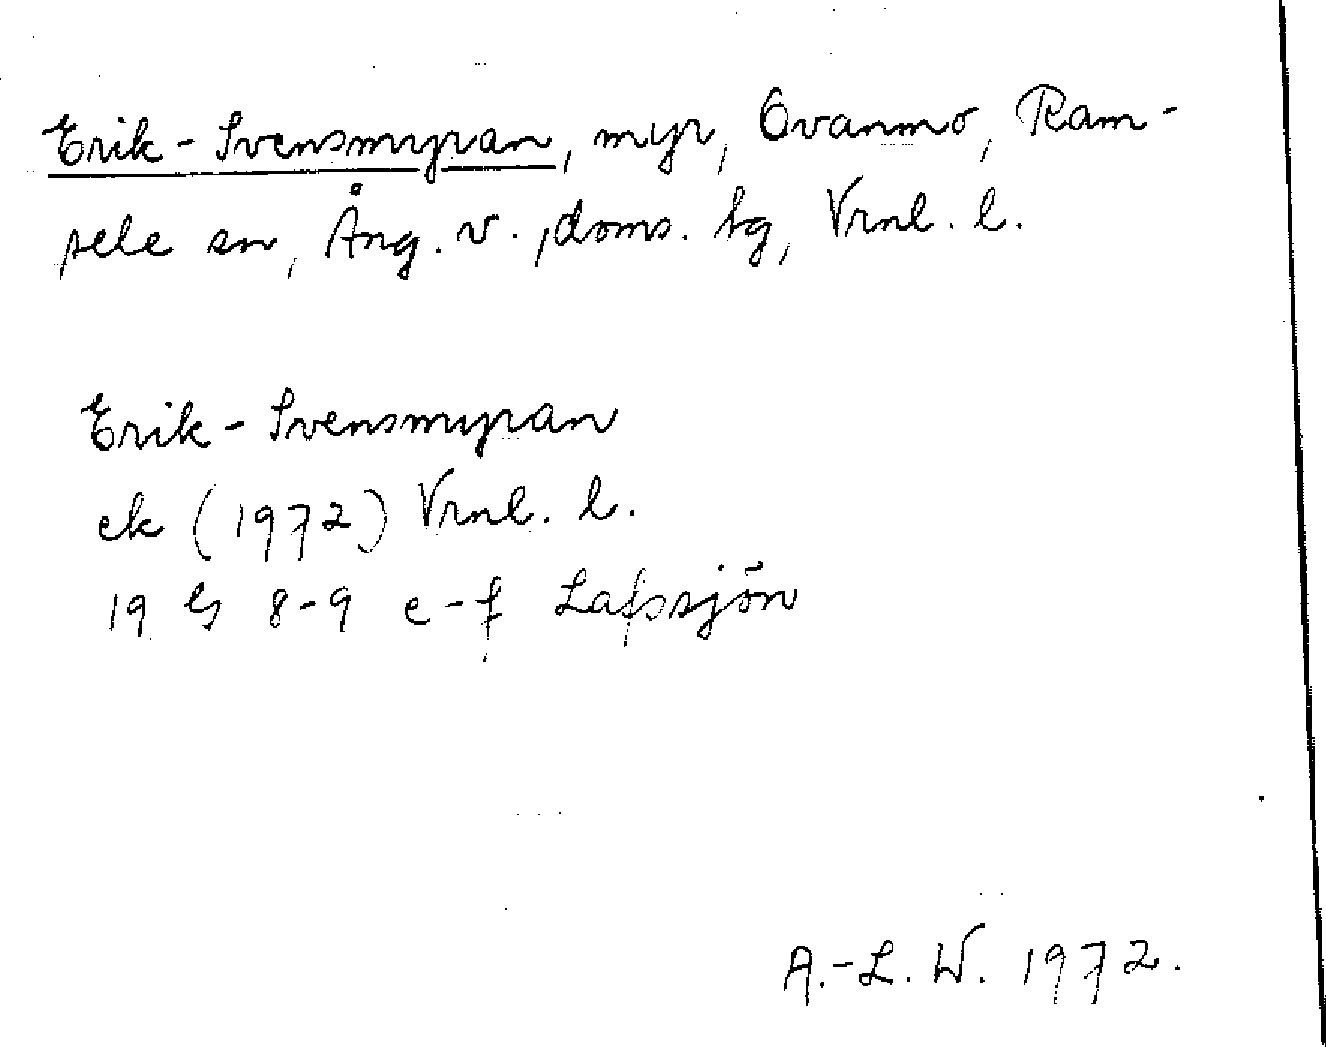 Erik-Svensmyran, myr, Ovanmo, Ram-
sele sn, Ång. v., doms. tg, Vrnl. l.
Erik-Svensmyran
ek (1972) Vrnl. l.
19 G 8-9 e-f Lafssjön
A.-L. W. 1972.